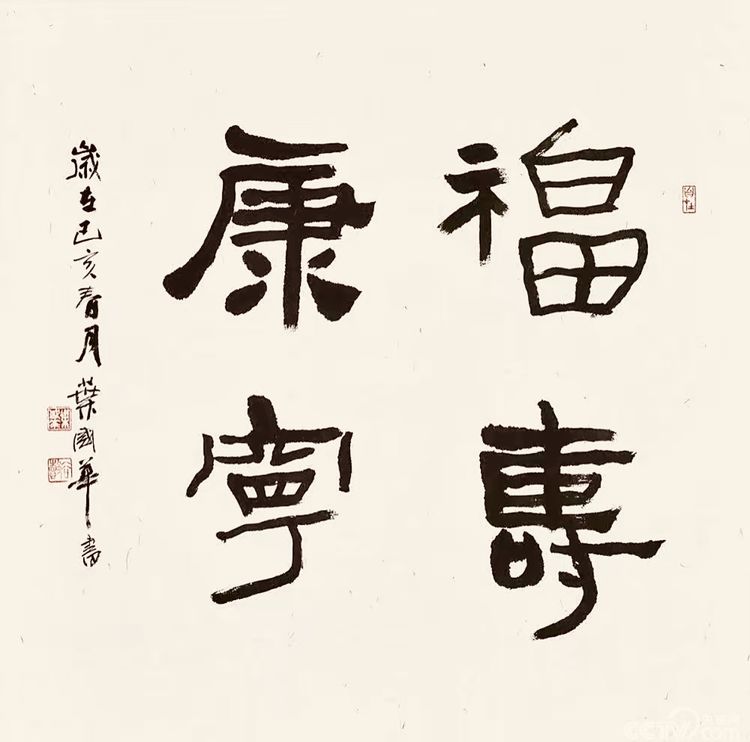 福壽
康寧
歲在己亥春月葉國華書
CCTV.com